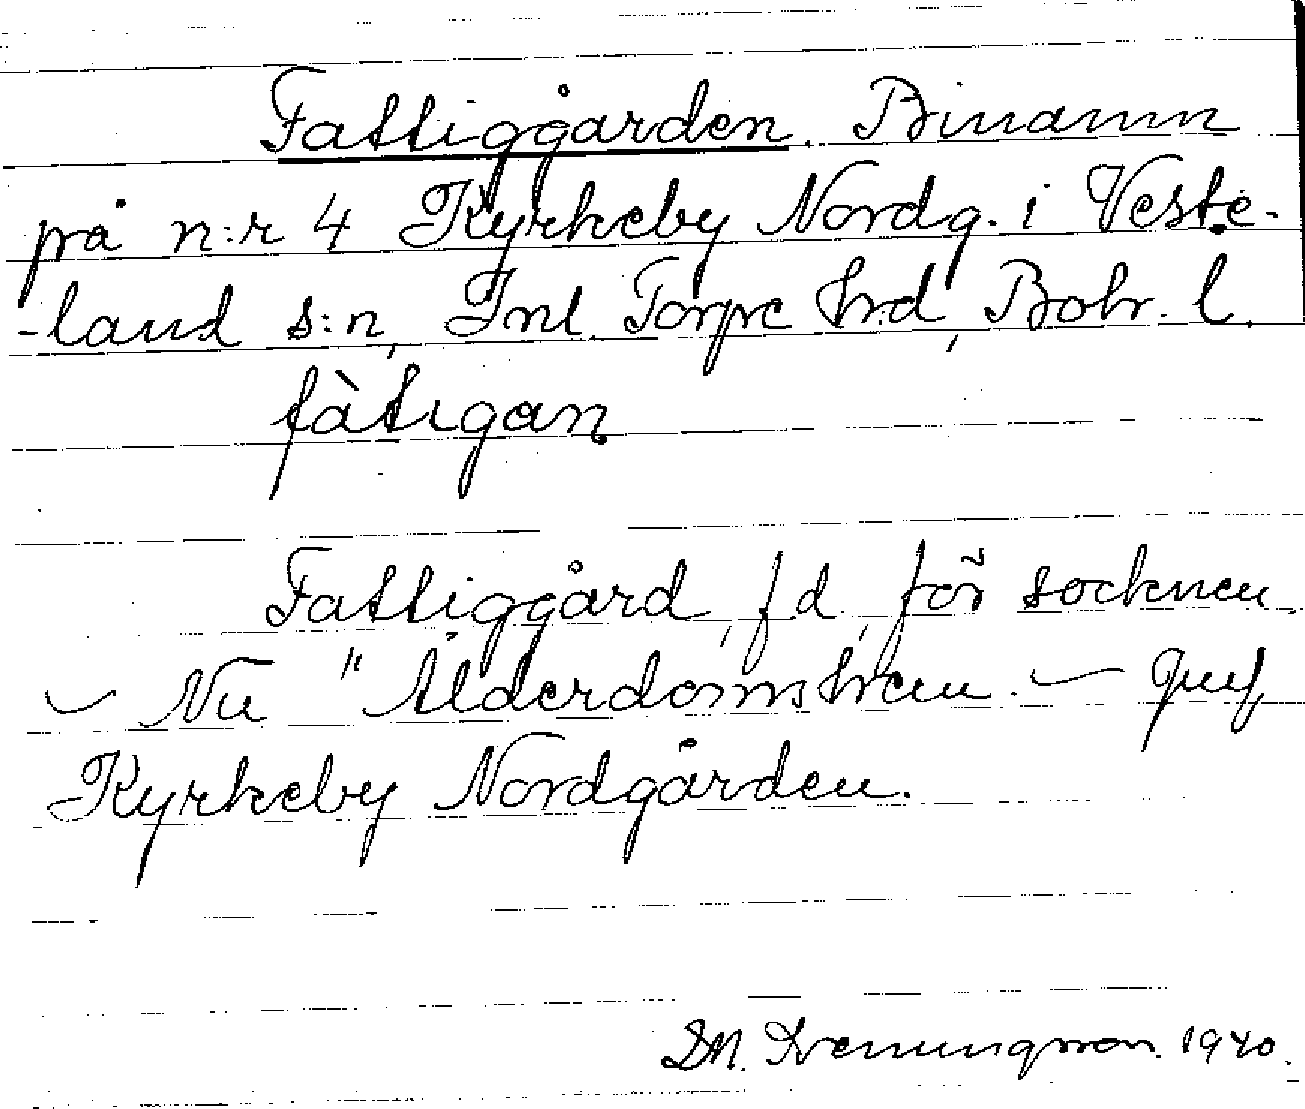 Fattiggården. Binamn
på n:r 4 Kyrkeby Nordg. i Veste-
-land s:n, Inl. Torpe hrd, Boh. l.
fàtigan
Fattiggård, f d, för socknen
- Nu "Ålderdomshem. -
Kyrkeby Nordgården.
1940.